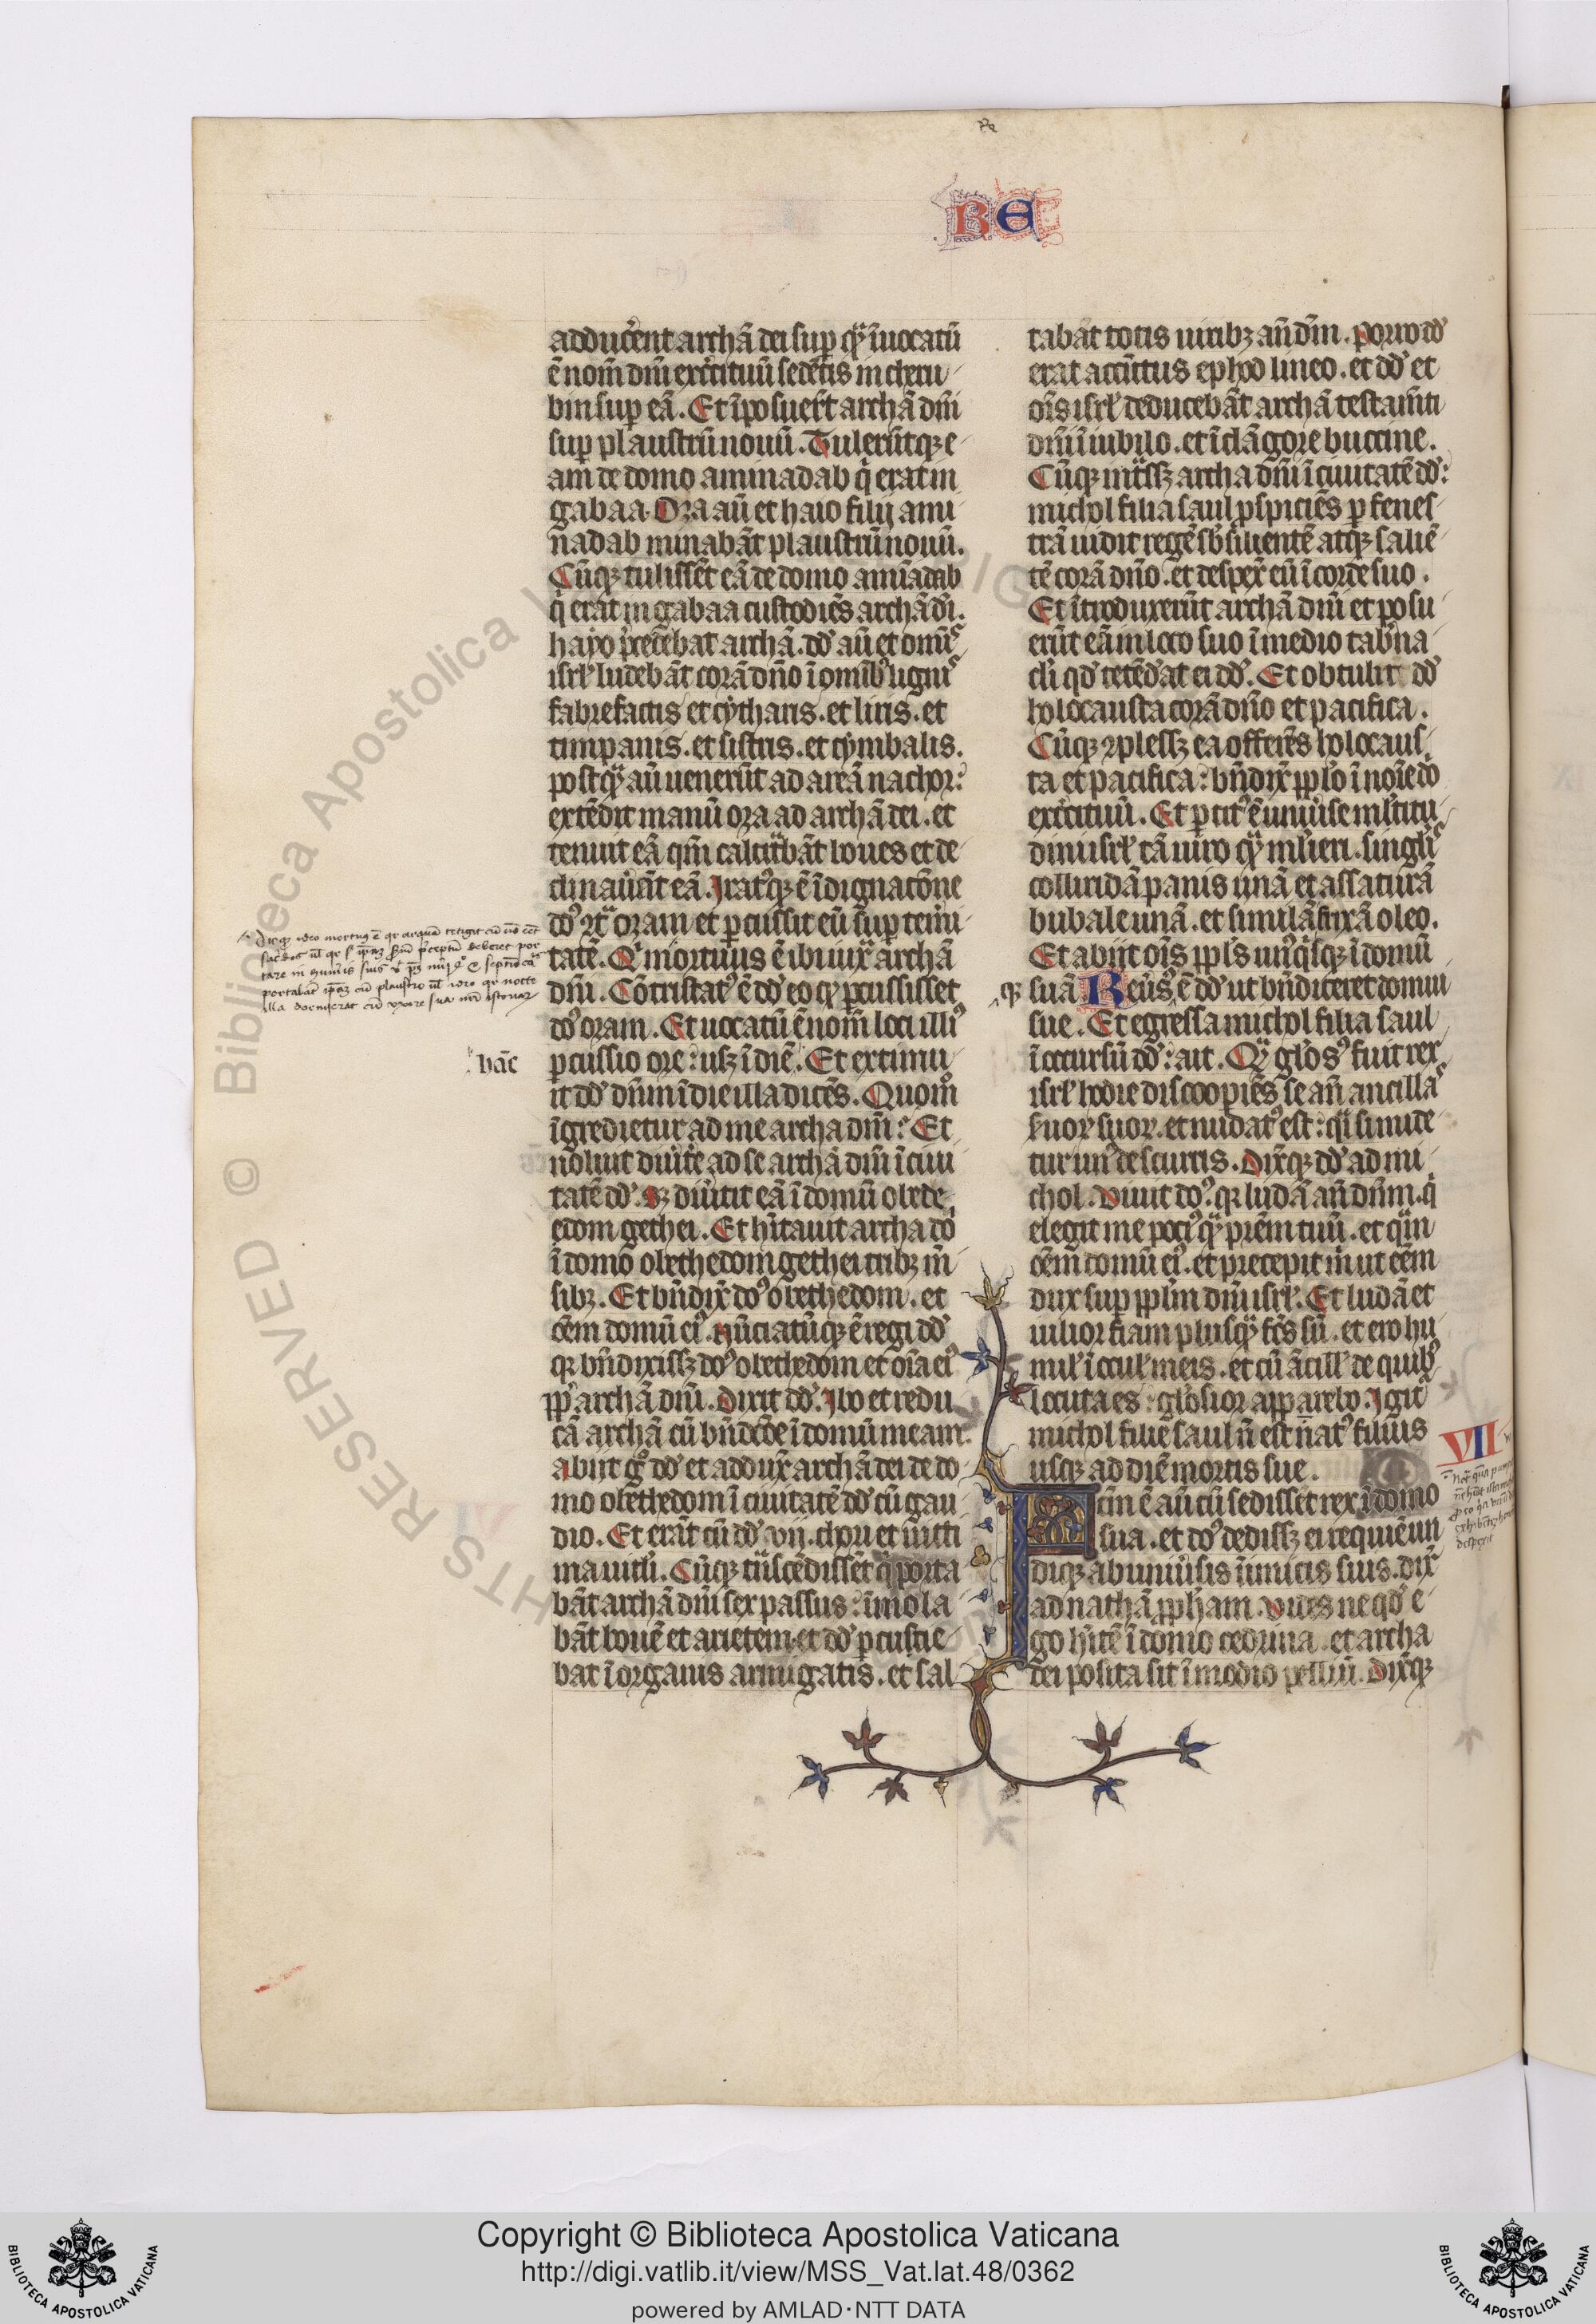 RE
adduc̉ent archā dei sup̱ qͣ̄ īuocatū
ē nom̄ dn̄i exc̉ituū sedētis in cheru
bin sup̱ eā. Et īposuer̄t archā dn̄i
sup̱ plaustrū nouū. Tulerūtqꝫ e
am̄ de domo aminadab q̇ erat in
gabaa. Oza aū et haio filij ami
nadab minabāt plaustrū nouū.
Cūqꝫ tulissēt eā de domo amīadab
q̇ erat in gabaa custodiēs archā di.
hajo p̄cedebat archā. dd̕ aū et omīs
isrl̕ ludebāt corā dn̄o ī omībꝰ lignis
fabrefactis et cytharis. et liris. et
timpanis. et sistris. et cymbalis.
postqͣ̄ aū uenerūt ad areā nachor:
extēdit manū oza ad archā dei. et
tenuit eā qm̄ calcitͣbāt boues et de
clinauer̄t eā. Iratꝰqꝫ ē īdignatōne
dn̄s 9tͣ ozam et p̱cussit eū sup̱ temi
tatē. Qi mortuus ē ibi iuxͣ archā
dn̄i. Cōtristatꝰ ē dd̕ eo qꝙ p̱cussisset
dn̄s oram. Et uocatū ē nom̄ loci illiꝰ
p̱cussio oze: usqꝫ ī diē. Et extimu
hāc
it dd̕ dn̄m ī die illa dicēs. Quom̊
īgredietur ad me archa dn̄i? Et
noluit diuit̉e ad se archā dn̄i ī ciui
tatē dd̕. Sꝫ diuertit eā ī domū obede
edom gethei. Et hītauit archa dn̄i
ī domo obethedom gethei tribꝫ m̄
sibꝫ. Et bn̄dix̄ dn̄s obethedom. et
oēm domū eiꝰ. Nūciatūqꝫ ē regi dd̕
qꝙ bn̄dixissꝫ dn̄s obethedom et oīa eiꝰ
pp̱̄ archā dn̄i. Dixit dd̕. Ibo et redu
cā archā cū bn̄dcōe ī domū meam.
abiit gͦ dd̕ et addux̄ archā dei de do
mo obethedom ī ciuitatē dd̕ cū gau
dio. Et erāt cū dd̕ .vij. chori et uicti
ma uitl̕i. Cūqꝫ tͣscēdissēt qͥ porta
bāt archā dn̄i sex passus: īmola
bāt bouē et arietem. et dd̕ p̱cutie
bat ī organis armigatis. et sal
tabat totis uiribꝫ an̄ dn̄m. Porro dd̕
erat accīctus ephod lineo. et dd̕ et
oīs isrl̕ deducebāt archā testam̄ti
dn̄i ī iubilo. et ī clāgore buccine.
Cūqꝫ intͣssꝫ archa dn̄i ī ciuitatē dd̕:
michol filia saul p̱spiciēs p̱ fenes
trā uidit regē sb̕silientē atqꝫ saliē
tē corā dn̄o. et despex̄ eū ī corde suo.
Et ītroduxerūt archā dn̄i et posu
erūt eā in loco suo ī medio tab̕na
cl̕i qd̕ tetēd̕at ei dd̕. Et obtulit dd̕
holocausta corā dn̄o et pacifica.
Cūqꝫ 9plessꝫ ea offerēs holocaus
ta et pacifica: bn̄dix̄ pp̱l̕o ī noīe dn̄i
exc̉ituū. Et p̱titꝰ ē uniu̕se ml̕titu
dini isrl̕ tā uiro qͣ̄ ml̕ieri. singl̕is
collirida panis unā et assaturā
bubale unā. et similā frixā oleo.
Et abijt oīs pp̱l̕s unꝰqͥsqꝫ ī domū
suā. Reu̕sꝰ ē dd̕ ut bn̄diceret domui
qꝫ
sue. Et egressa michol filia saul
ī occursū dd̕: ait. Qͣ̄ gl̕osꝰ fuit rex
isrl̕ hodie discoop̱iēs se an̄ ancillas
s̕uor suor. et nudatꝰ est: qͣ̄ si nude
tur unꝰ de scurris. Dix̄qꝫ dd̕ ad mi
chol. Viuit dn̄s. qꝙ ludā an̄ dn̄m. q̇
elegit me pociꝰ qͣ̄ pr̄em tuū. et qͣ̄
oēm domū eiꝰ. et precepit m̄ ut eēm
dux sup̱ pp̱l̕m dn̄i isrl̕. Et ludā et
uilior fiam plusqͣ̄ fc̄s sū. et ero hu
mil̕ ī ocul̕ meis. et cū ācill̕ de quibꝰ
locuta es: gl̕osior apparebo. Igit̉
michol filie saul n̄ est natꝰ filius
usqꝫ ad diē mortis sue.
VII
Factm̄ ē aū cū sedisset rex ī domo
sua. et dn̄s dedissꝫ ei requiē un
diqꝫ ab uniu̕sis īimicis suis. dix̄
ad nathā pp̱ham. Vides ne qd̕ e
go hītē ī domo cedrina. et archa
dei posita sit ī medio pelliū. Dix̄qꝫ
Copyright © Biblioteca Apostolica Vaticana
http://digi.vatlib.it/view/MSS_Vat.lat.48/0362
powered by AMLAD·NTT DATA
BIBLIOTECA APOSTOLICA VATICANA
BIBLIOTECA APOSTOLICA VATICANA